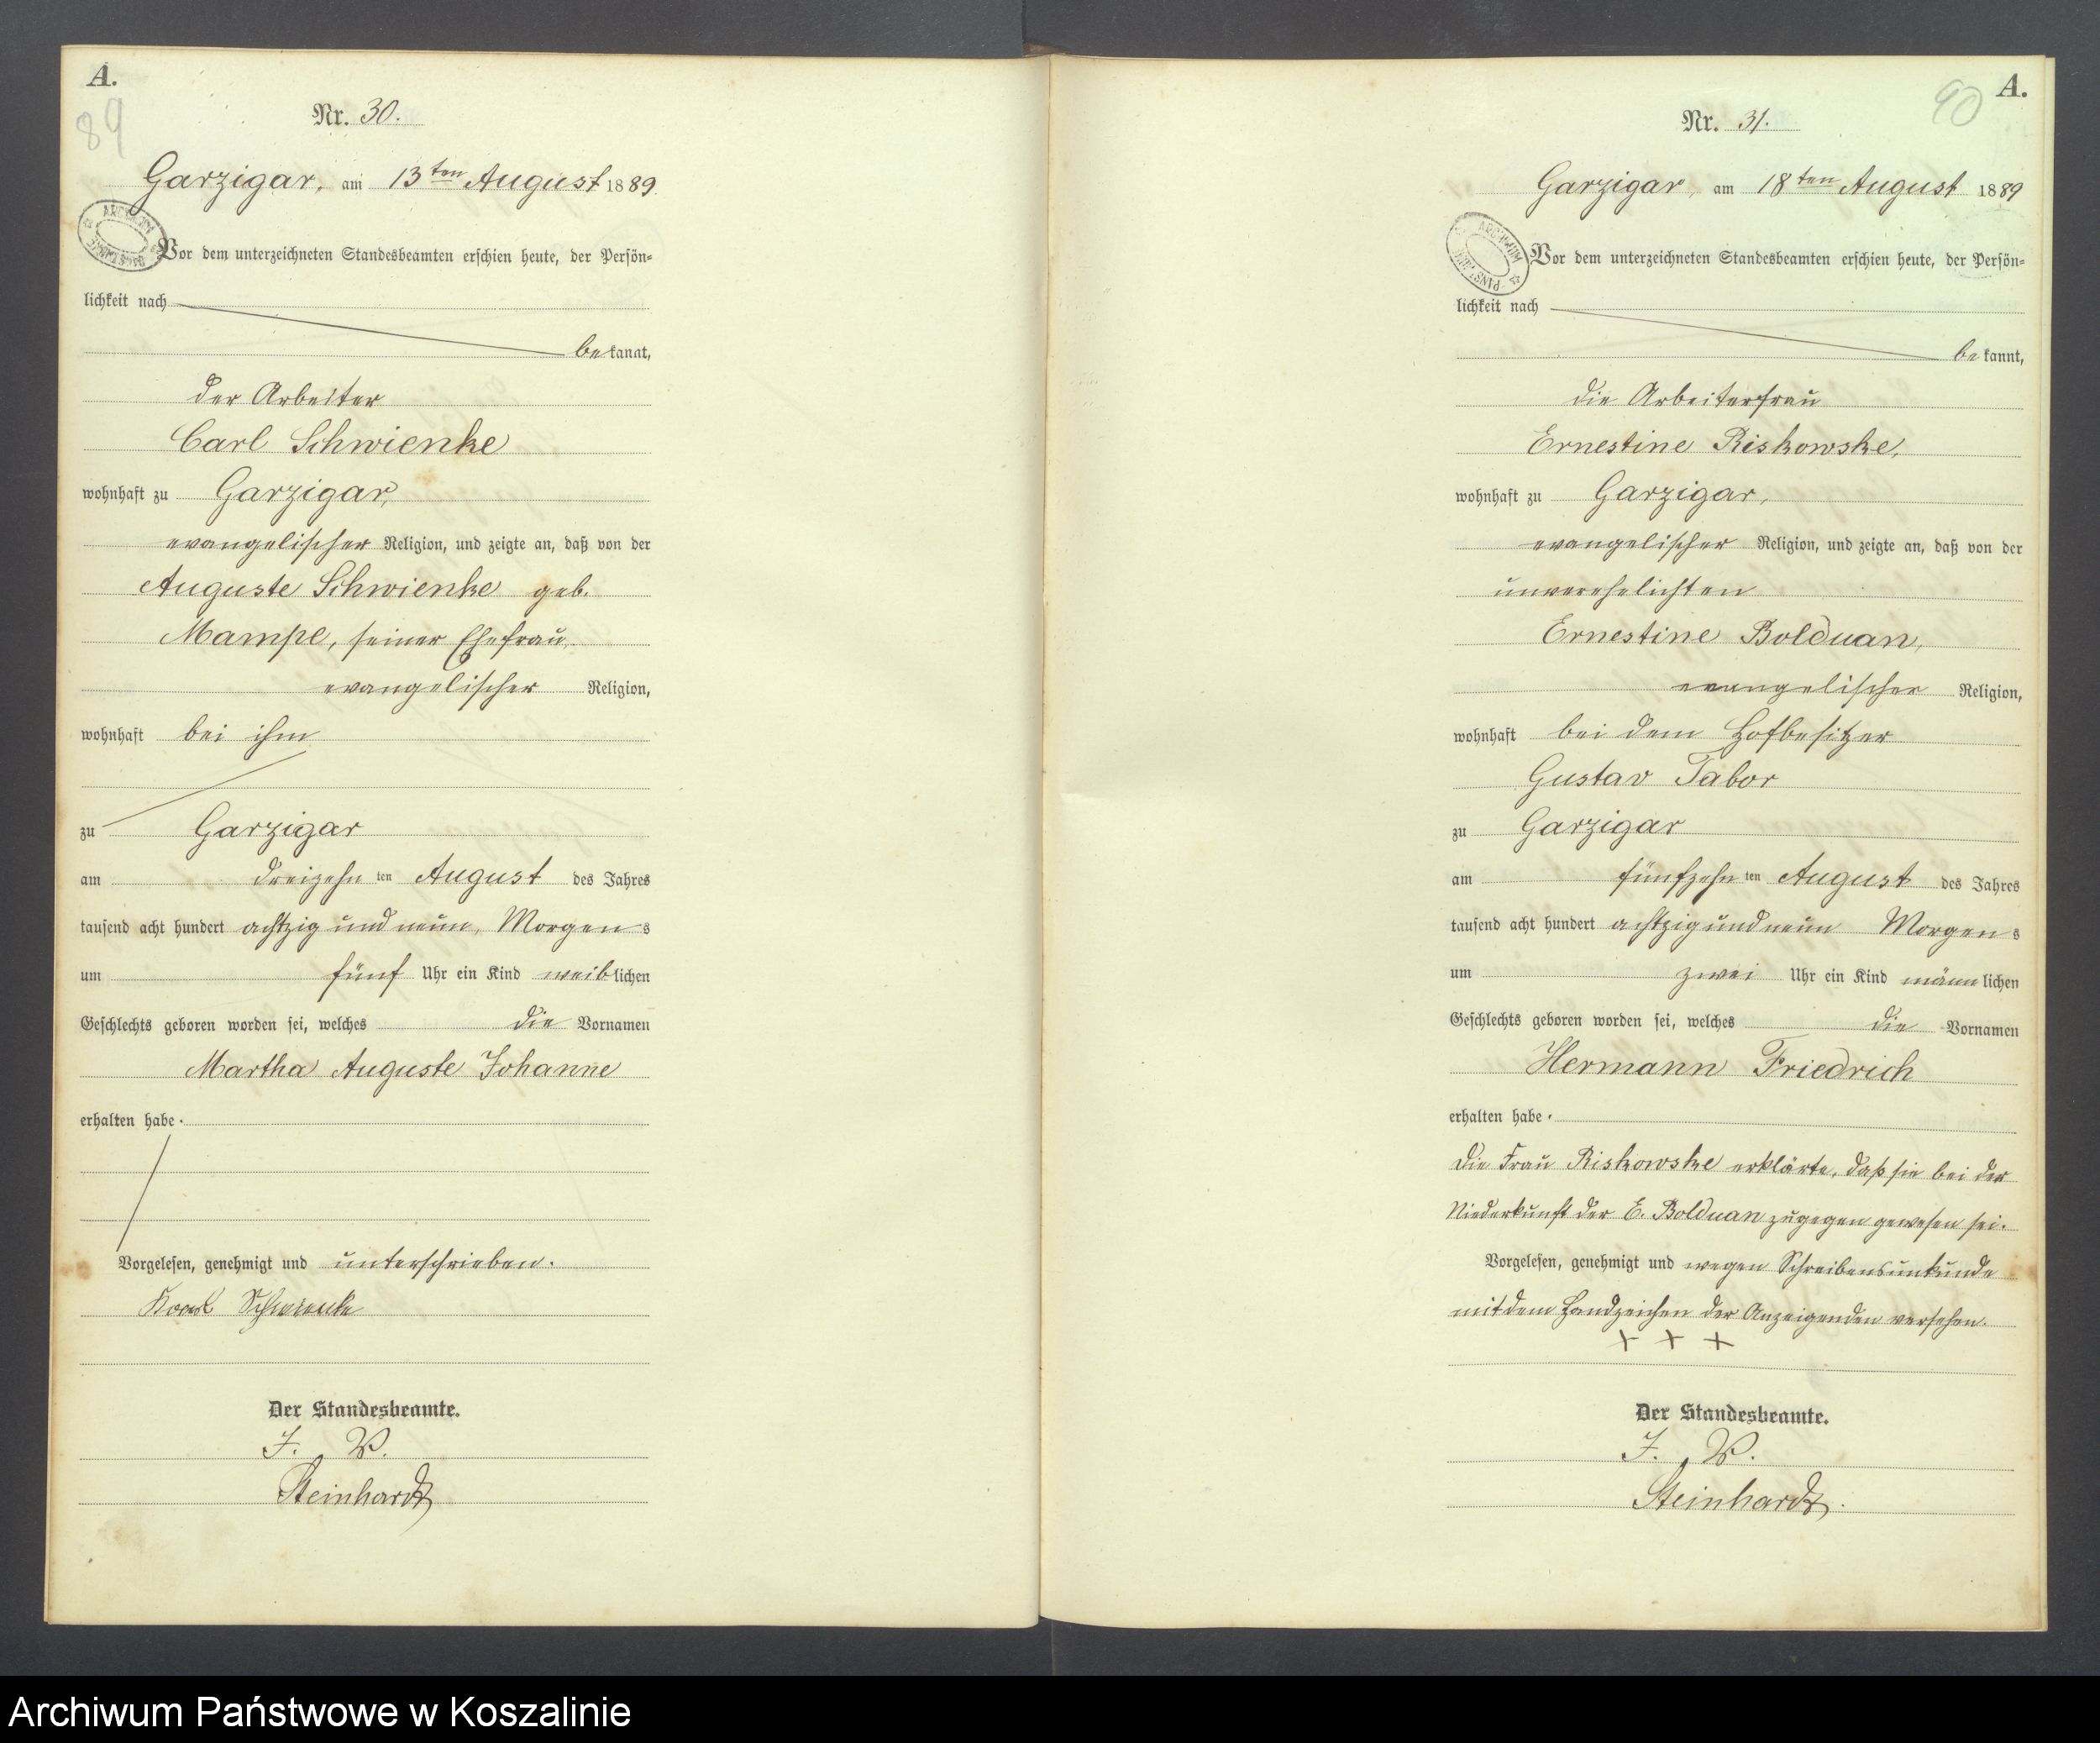 A.
89
Nr. 30.
Garzigar, am 13ten August 1889
Vor dem unterzeichneten Standesbeamten erschien heute, der Persön=
lichkeit nach
bekannt,
der Arbeiter
Carl Schwienke
wohnhaft zu Garzigar,
evangelischer Religion, und zeigte an, daß von der
Auguste Schwienke geb.
Mampe, seiner Ehefrau,
evangelischer Religion,
wohnhaft bei ihm
zu Garzigar
am dreizehn ten August des Jahres
tausend acht hundert achtzig und neun, Morgens
um fünf Uhr ein Kind weiblichen
Geschlechts geboren worden sei, welches die Vornamen
Martha Auguste Johanne
erhalten habe.
Vorgelesen, genehmigt und unterschrieben.
Karl Schwienke
Der Standesbeamte.
J. V.
Steinhardt
A.
90
Nr. 31.
Garzigar, am 18ten August 1889
ARCHIWUM
Vor dem unterzeichneten Standesbeamten erschien heute, der Persön=
lichkeit nach
bekannt,
die Arbeiterfrau
Ernestine Riskowske,
wohnhaft zu Garzigar,
evangelischer Religion, und zeigte an, daß von der
unverehelichten
Ernestine Bolduan,
evangelischer Religion,
wohnhaft bei dem Hofbesitzer
Gustav Tabor
zu Garzigar
am fünfzehn ten August des Jahres
tausend acht hundert achtzig und neun Morgens
um zwei Uhr ein Kind männlichen
Geschlechts geboren worden sei, welches die Vornamen
Hermann Friedrich
erhalten habe.
Die Frau Riskowske erklärte, daß sie bei der
Niederkunft der E. Bolduan zugegen gewesen sei.
Vorgelesen, genehmigt und wegen Schreibensunkunde
mit dem Handzeichen der Anzeigenden versehen.
+ + +
Der Standesbeamte.
J. V.
Steinhardt.
Archiwum Państwowe w Koszalinie